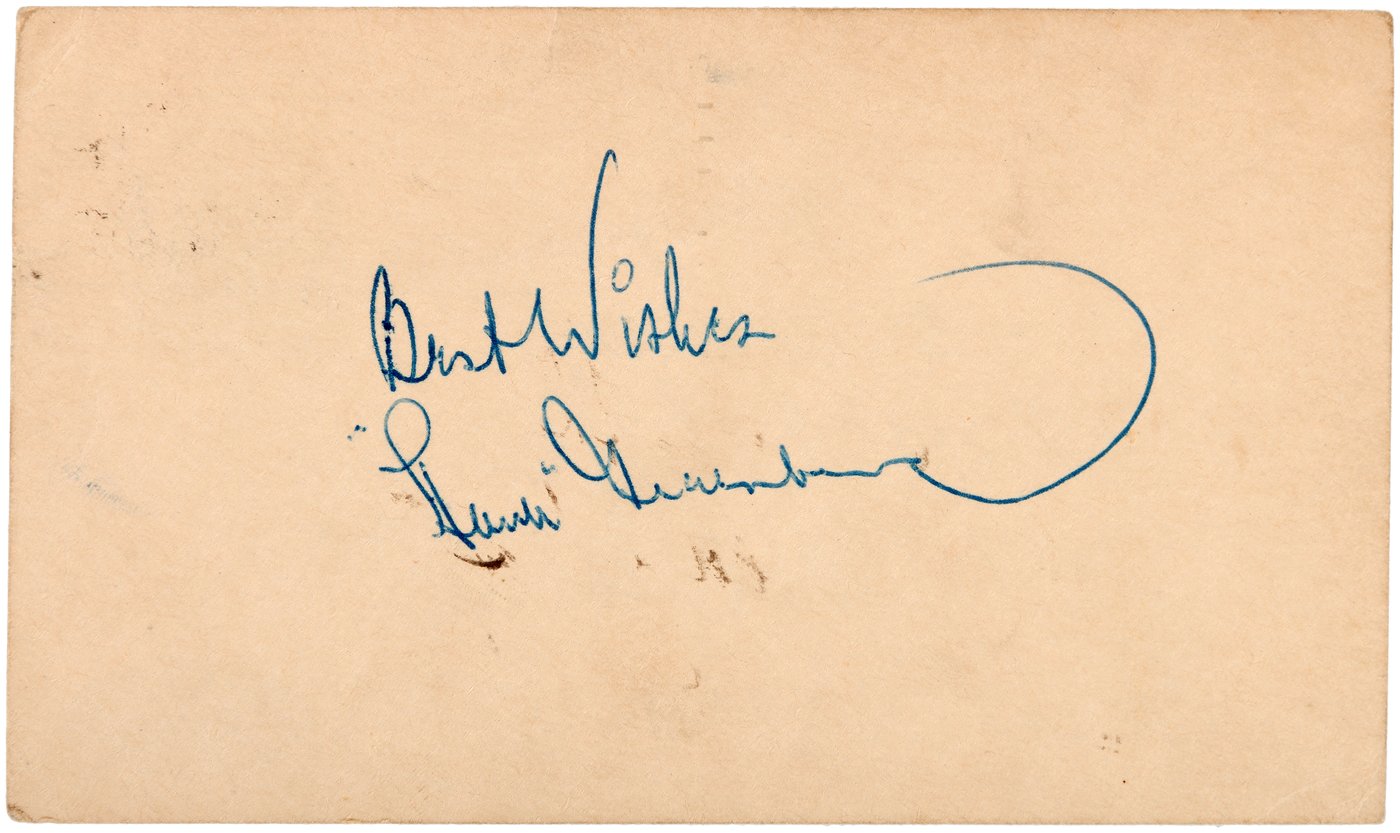 Best Wishes
"Hank" Greenberg